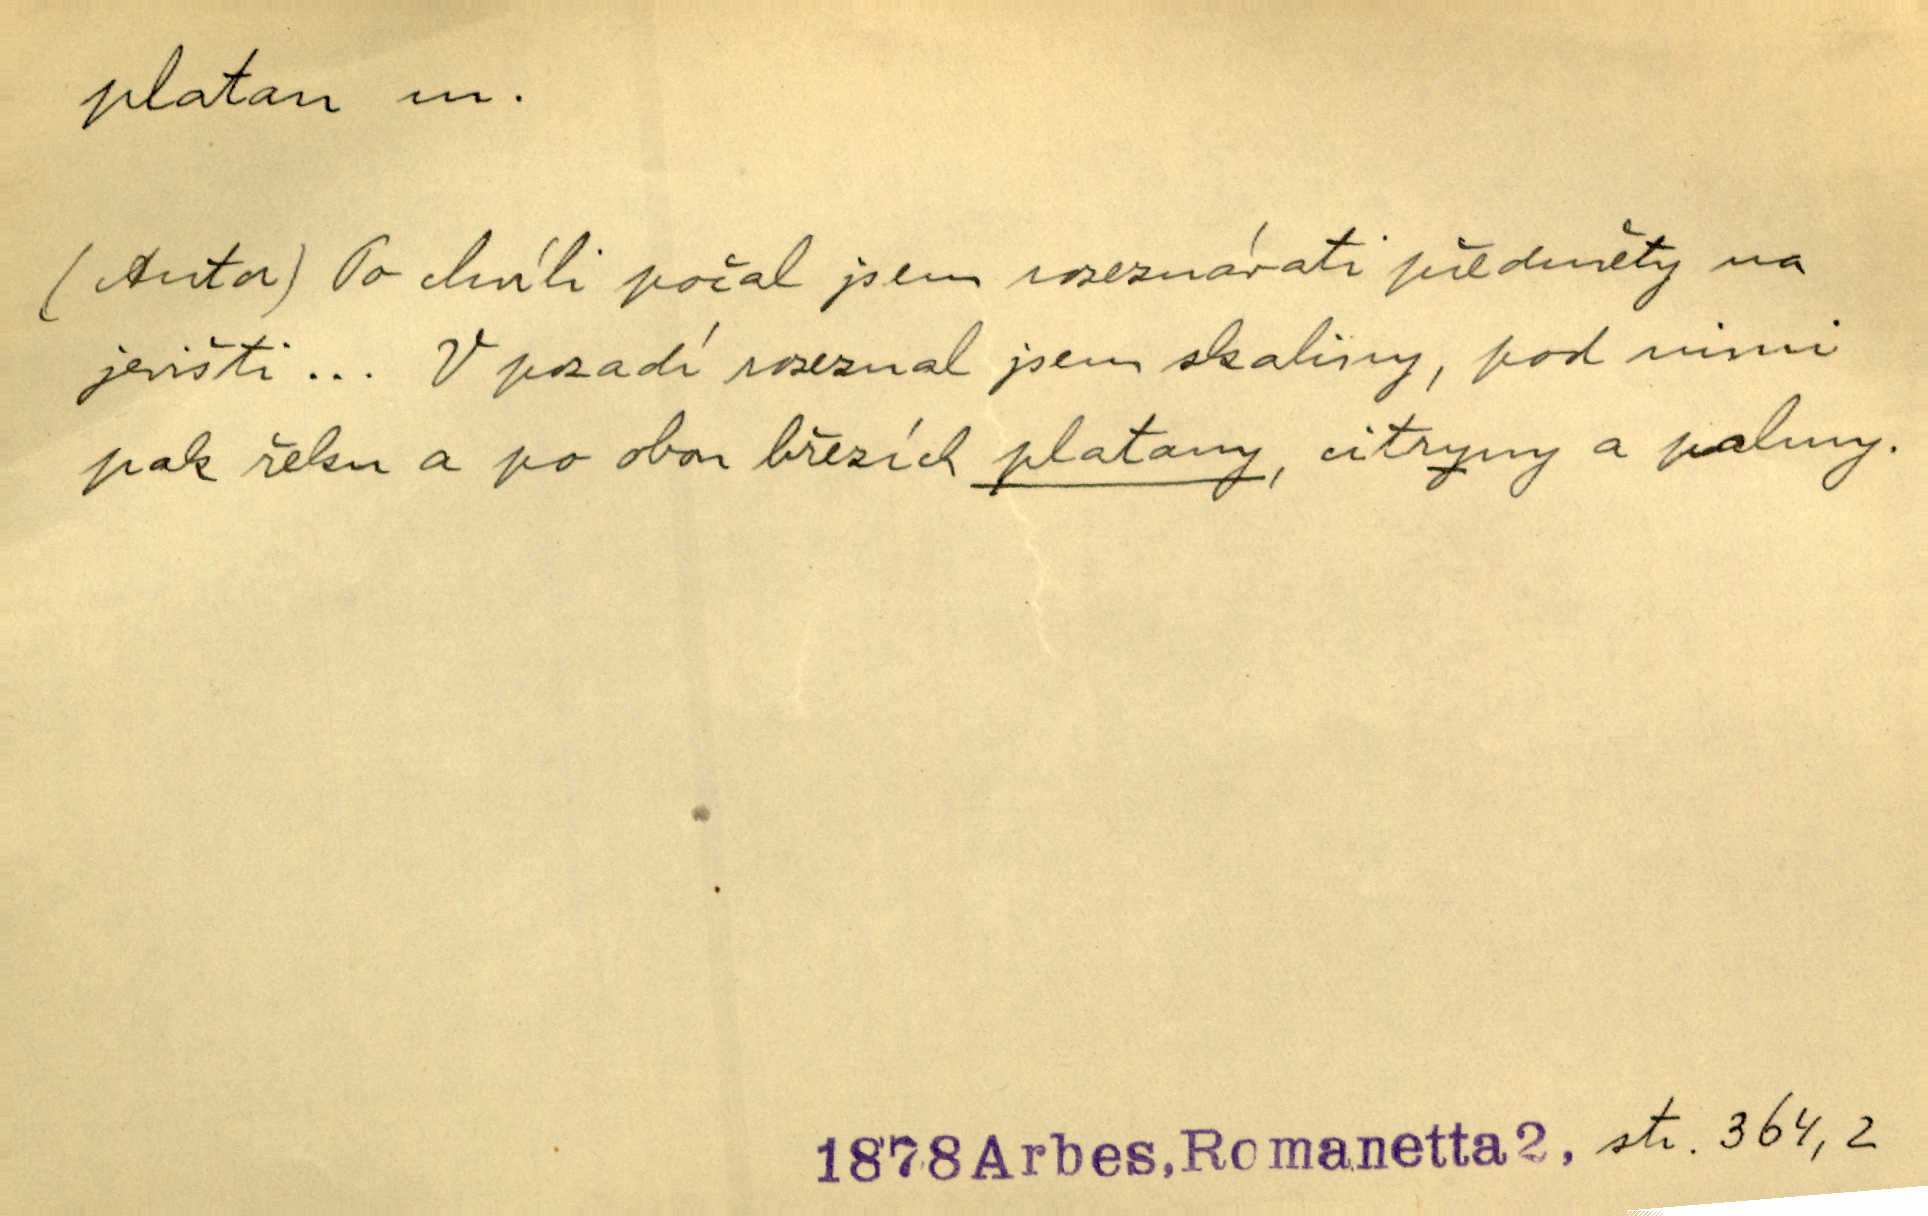 platan m.
(Autor) Po chvíli počal jsem rozeznávati předměty na
jevišti ... V pozadí rozeznal jsem skaliny, pod nimi
pak řeku a po obou březích platany, citryny a palmy.
1878 Arbes, Romanetta 2, str. 364, 2